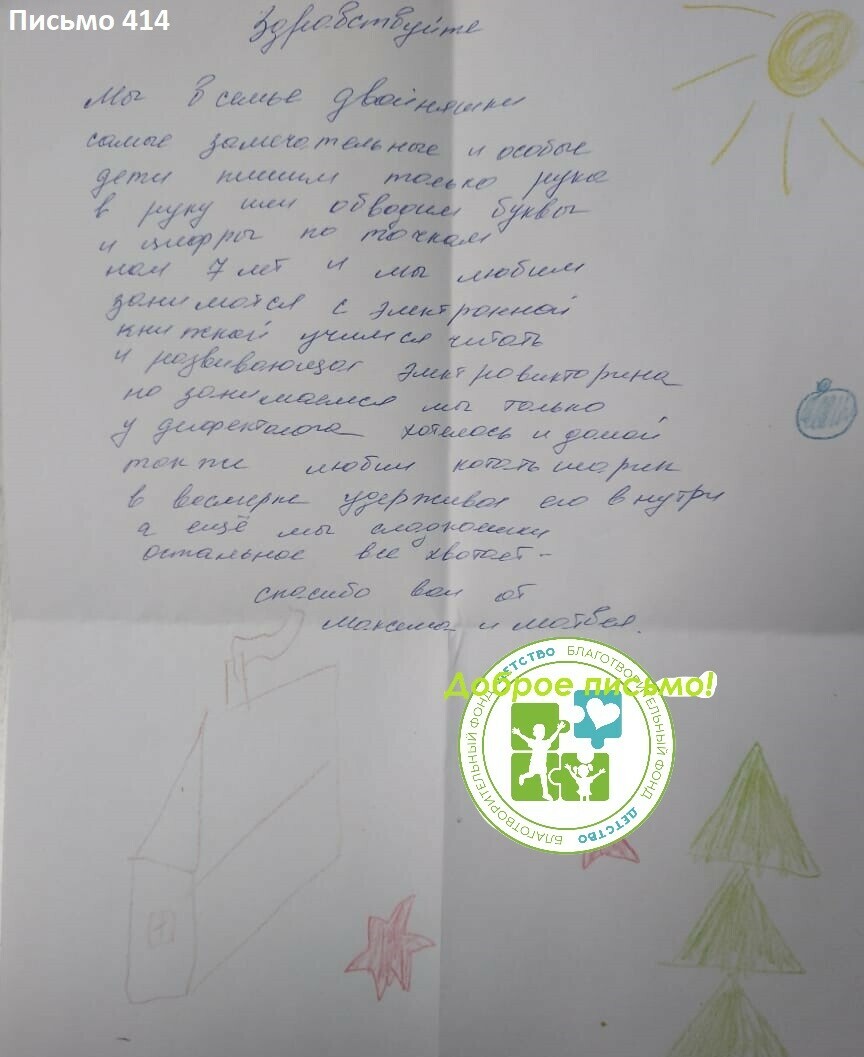 Письмо 414
Здравствуйте
Мы в семье двойняшки
самые замечательные и особые
дети пишим только рука
в руку или обводим буквы
и цифры по точкам
нам 7 лет и мы любим
заниматся с электронной
книжкой учимся читать
и развивающая электровикторина
но занимаемся мы только
у дефектолога хотелось и домой
так же любим катать шарик
в восмерке удерживая его внутри
а ещё мы сладкоешки
остальное все хватает-
спасибо вам от
Максима и Матвея.
Доброе письмо!
БЛАГОТВОРИТЕЛЬНЫЙ ФОНД ДЕТСТВО БЛАГОТВОРИТЕЛЬНЫЙ ФОНД ДЕТСТВО